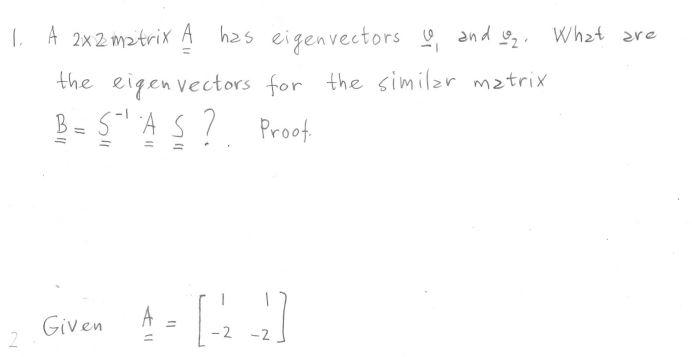 1. A 2x2 matrix A has eigenvectors v₁ and v₂. What are
the eigenvectors for the similar matrix
B = S⁻¹ A S ? Proof.
2. Given A = [ 1 1
-2 -2 ]